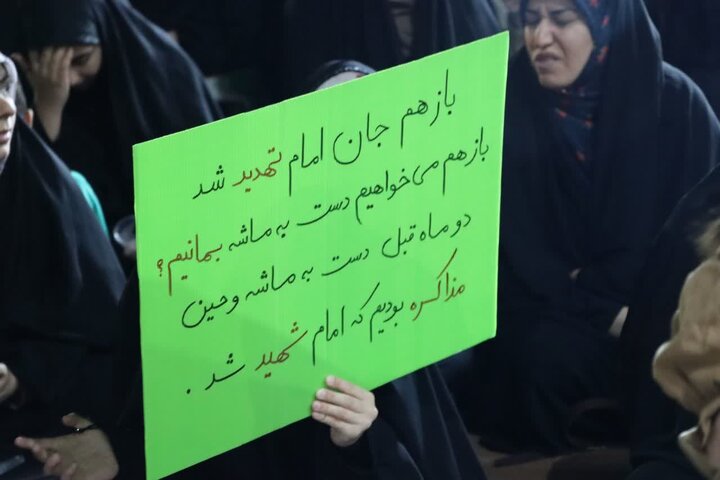 بازهم جان امام تهدید شد
بازهم می‌خواهیم دست به ماشه بمانیم؟
دو ماه قبل دست به ماشه و حین
مذاکره بودیم که امام شهید شد.